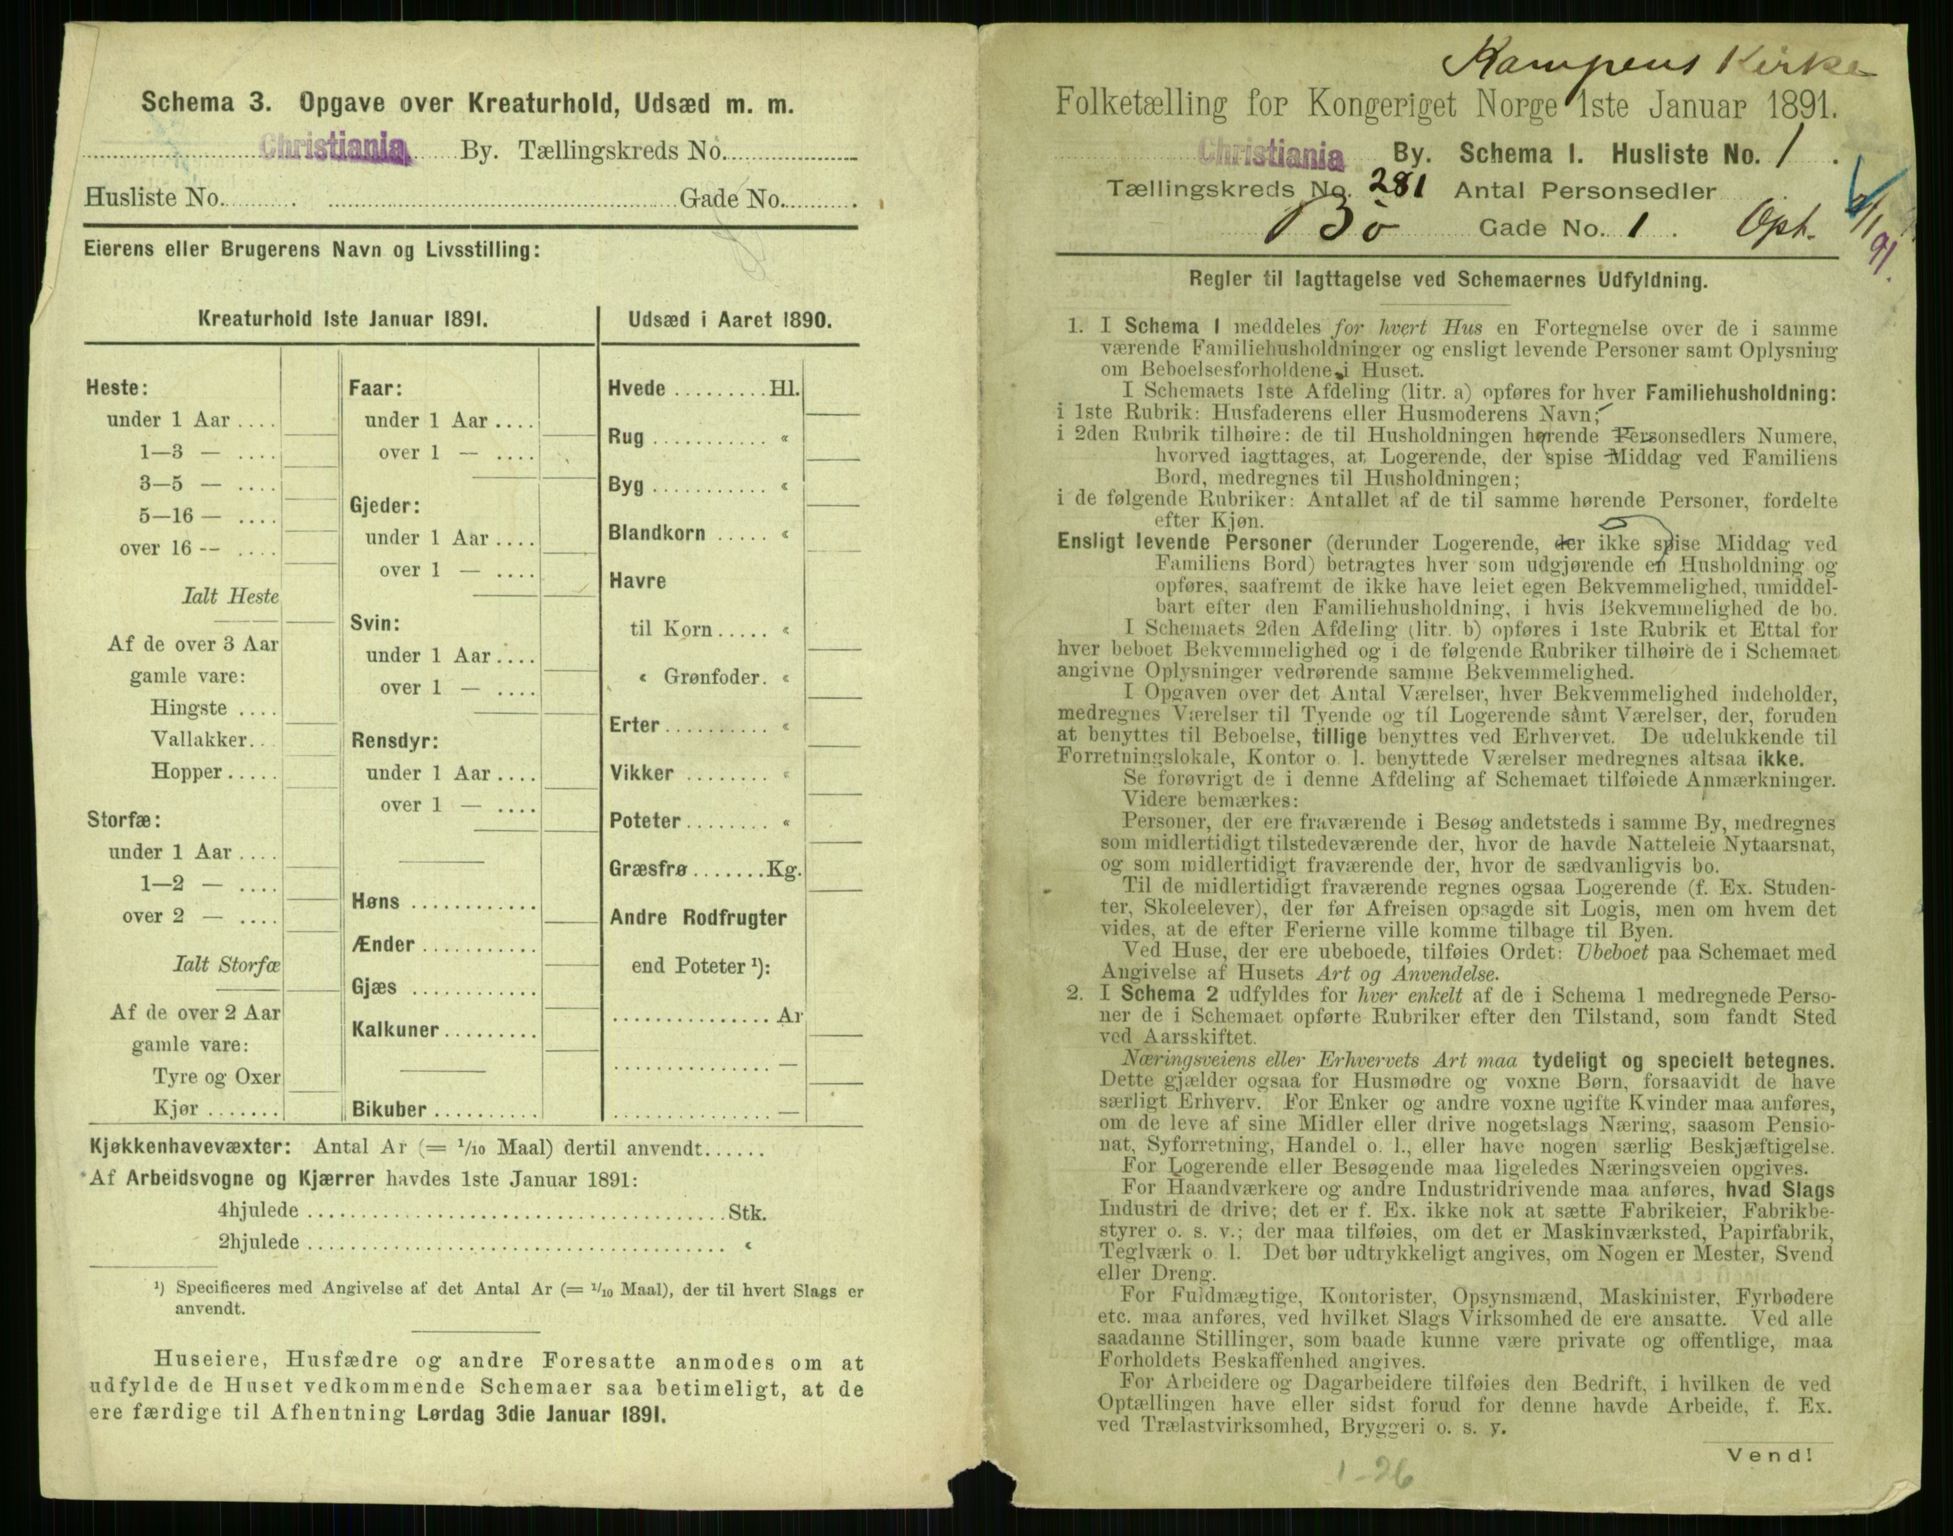 Schema 3. Opgave over Kreaturhold, Udsæd m. m.
Christiania By. Tællingskreds No.
Husliste No. Gade No.
Eierens eller Brugerens Navn og Livsstilling:
Kreaturhold 1ste Januar 1891.
Heste:
under 1 Aar ....
1—3 — ....
3—5 — ....
5—16 — ....
over 16 -- ....
Ialt Heste
Af de over 3 Aar
gamle vare:
Hingste ....
Vallakker..
Hopper.....
Storfæ:
under 1 Aar ....
1—2 — ....
over 2 — ....
Ialt Storfæ
Af de over 2 Aar
gamle vare:
Tyre og Oxer
Kjør .......
Faar:
under 1 Aar ....
over 1 — ....
Gjeder:
under 1 Aar ....
over 1 — ....
Svin:
under 1 Aar ....
over 1 — ....
Rensdyr:
under 1 Aar ....
over 1 — ....
Høns ............
Ænder ...........
Gjæs ............
Kalkuner .........
Bikuber ..........
Udsæd i Aaret 1890.
Hvede ......... Hl.
Rug ........... «
Byg ........... «
Blandkorn ..... «
Havre
til Korn ..... «
« Grønfoder. «
Erter .......... «
Vikker ........ «
Poteter ........ «
Græsfrø ....... Kg.
Andre Rodfrugter
end Poteter ¹):
............... Ar
............... —
............... —
Kjøkkenhavevæxter: Antal Ar (= ¹/₁₀ Maal) dertil anvendt......
Af Arbeidsvogne og Kjærrer havdes 1ste Januar 1891:
4hjulede ........................................ Stk.
2hjulede ........................................ «
¹) Specificeres med Angivelse af det Antal Ar (= ¹/₁₀ Maal), der til hvert Slags er
anvendt.
Huseiere, Husfædre og andre Foresatte anmodes om at
udfylde de Huset vedkommende Schemaer saa betimeligt, at de
ere færdige til Afhentning Lørdag 3die Januar 1891.
Kampens Kirke
Folketælling for Kongeriget Norge 1ste Januar 1891.
Christiania By. Schema 1. Husliste No. 1.
Tællingskreds No. 281 Antal Personsedler
Bö Gade No. 1. Opt. 2/1 91.
Regler til Iagttagelse ved Schemaernes Udfyldning.
1. I Schema 1 meddeles for hvert Hus en Fortegnelse over de i samme
værende Familiehusholdninger og ensligt levende Personer samt Oplysning
om Beboelsesforholdene i Huset.
I Schemaets 1ste Afdeling (litr. a) opføres for hver Familiehusholdning:
i 1ste Rubrik: Husfaderens eller Husmoderens Navn;
i 2den Rubrik tilhøire: de til Husholdningen hørende Personsedlers Numere,
hvorved iagttages, at Logerende, der spise Middag ved Familiens
Bord, medregnes til Husholdningen;
i de følgende Rubriker: Antallet af de til samme hørende Personer, fordelte
efter Kjøn.
Ensligt levende Personer (derunder Logerende, der ikke spise Middag ved
Familiens Bord) betragtes hver som udgjørende en Husholdning og
opføres, saafremt de ikke have leiet egen Bekvemmelighed, umiddel-
bart efter den Familiehusholdning, i hvis Bekvemmelighed de bo.
I Schemaets 2den Afdeling (litr. b) opføres i 1ste Rubrik et Ettal for
hver beboet Bekvemmelighed og i de følgende Rubriker tilhøire de i Schemaet
angivne Oplysninger vedrørende samme Bekvemmelighed.
I Opgaven over det Antal Værelser, hver Bekvemmelighed indeholder,
medregnes Værelser til Tyende og til Logerende samt Værelser, der, foruden
at benyttes til Beboelse, tillige benyttes ved Erhvervet. De udelukkende til
Forretningslokale, Kontor o. l. benyttede Værelser medregnes altsaa ikke.
Se forøvrigt de i denne Afdeling af Schemaet tilføiede Anmærkninger.
Videre bemærkes:
Personer, der ere fraværende i Besøg andetsteds i samme By, medregnes
som midlertidigt tilstedeværende der, hvor de havde Natteleie Nytaarsnat,
og som midlertidigt fraværende der, hvor de sædvanligvis bo.
Til de midlertidigt fraværende regnes ogsaa Logerende (f. Ex. Studen-
ter, Skoleelever), der før Afreisen opsagde sit Logis, men om hvem det
vides, at de efter Ferierne ville komme tilbage til Byen.
Ved Huse, der ere ubeboede, tilføies Ordet: Ubeboet paa Schemaet med
Angivelse af Husets Art og Anvendelse.
2. I Schema 2 udfyldes for hver enkelt af de i Schema 1 medregnede Perso-
ner de i Schemaet opførte Rubriker efter den Tilstand, som fandt Sted
ved Aarsskiftet.
Næringsveiens eller Erhvervets Art maa tydeligt og specielt betegnes.
Dette gjælder ogsaa for Husmødre og voxne Børn, forsaavidt de have
særligt Erhverv. For Enker og andre voxne ugifte Kvinder maa anføres,
om de leve af sine Midler eller drive nogetslags Næring, saasom Pensio-
nat, Syforretning, Handel o. l., eller have nogen særlig Beskjæftigelse.
For Logerende eller Besøgende maa ligeledes Næringsveien opgives.
For Haandværkere og andre Industridrivende maa anføres, hvad Slags
Industri de drive; det er f. Ex. ikke nok at sætte Fabrikeier, Fabrikbe-
styrer o. s. v.; der maa tilføies, om det er Maskinværksted, Papirfabrik,
Teglværk o. l. Det bør udtrykkeligt angives, om Nogen er Mester, Svend
eller Dreng.
For Fuldmægtige, Kontorister, Opsynsmænd, Maskinister, Fyrbødere
etc. maa anføres, ved hvilket Slags Virksomhed de ere ansatte. Ved alle
saadanne Stillinger, som baade kunne være private og offentlige, maa
Forholdets Beskaffenhed angives.
For Arbeidere og Dagarbeidere tilføies den Bedrift, i hvilken de ved
Optællingen have eller sidst forud for denne havde Arbeide, f. Ex.
ved Trælastvirksomhed, Bryggeri o. s. y.
Vend!
1-26